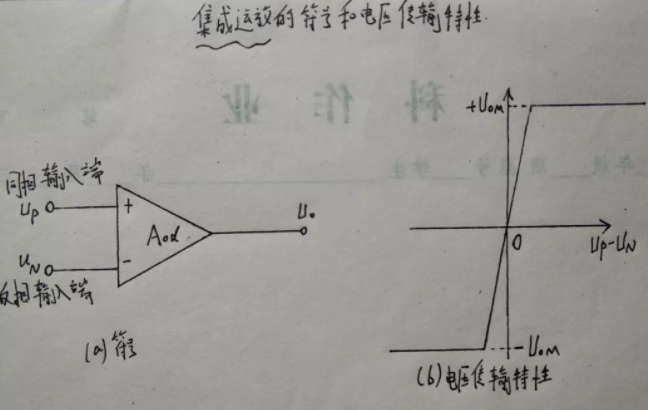 集成运放的符号和电压传输特性.
同相输入端
uP
+
Aod
uo
uN
-
反相输入端
(a)符号
+UOM
0
uP-uN
-UOM
(b)电压传输特性
科作业